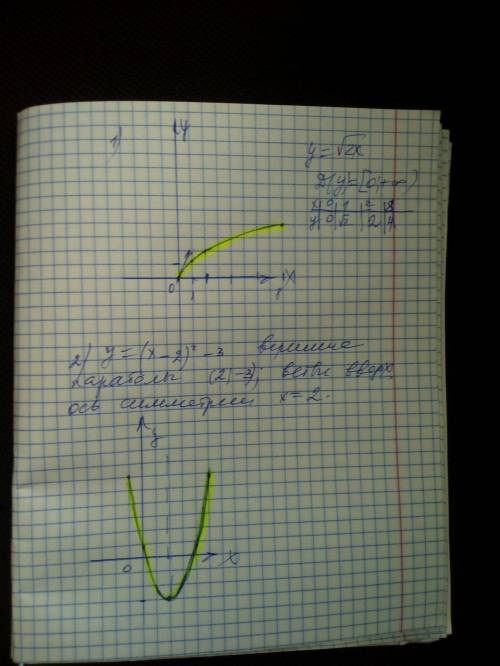 1)
y
y = √2x
D(y)=[0;+∞)
x 0 1 2 8
y 0 √2 2 4
1
0 1 x
2) y = (x – 2)² – 3 вершина
параболы (2;-3); ветви вверх,
ось симметрии x = 2.
y
0 x